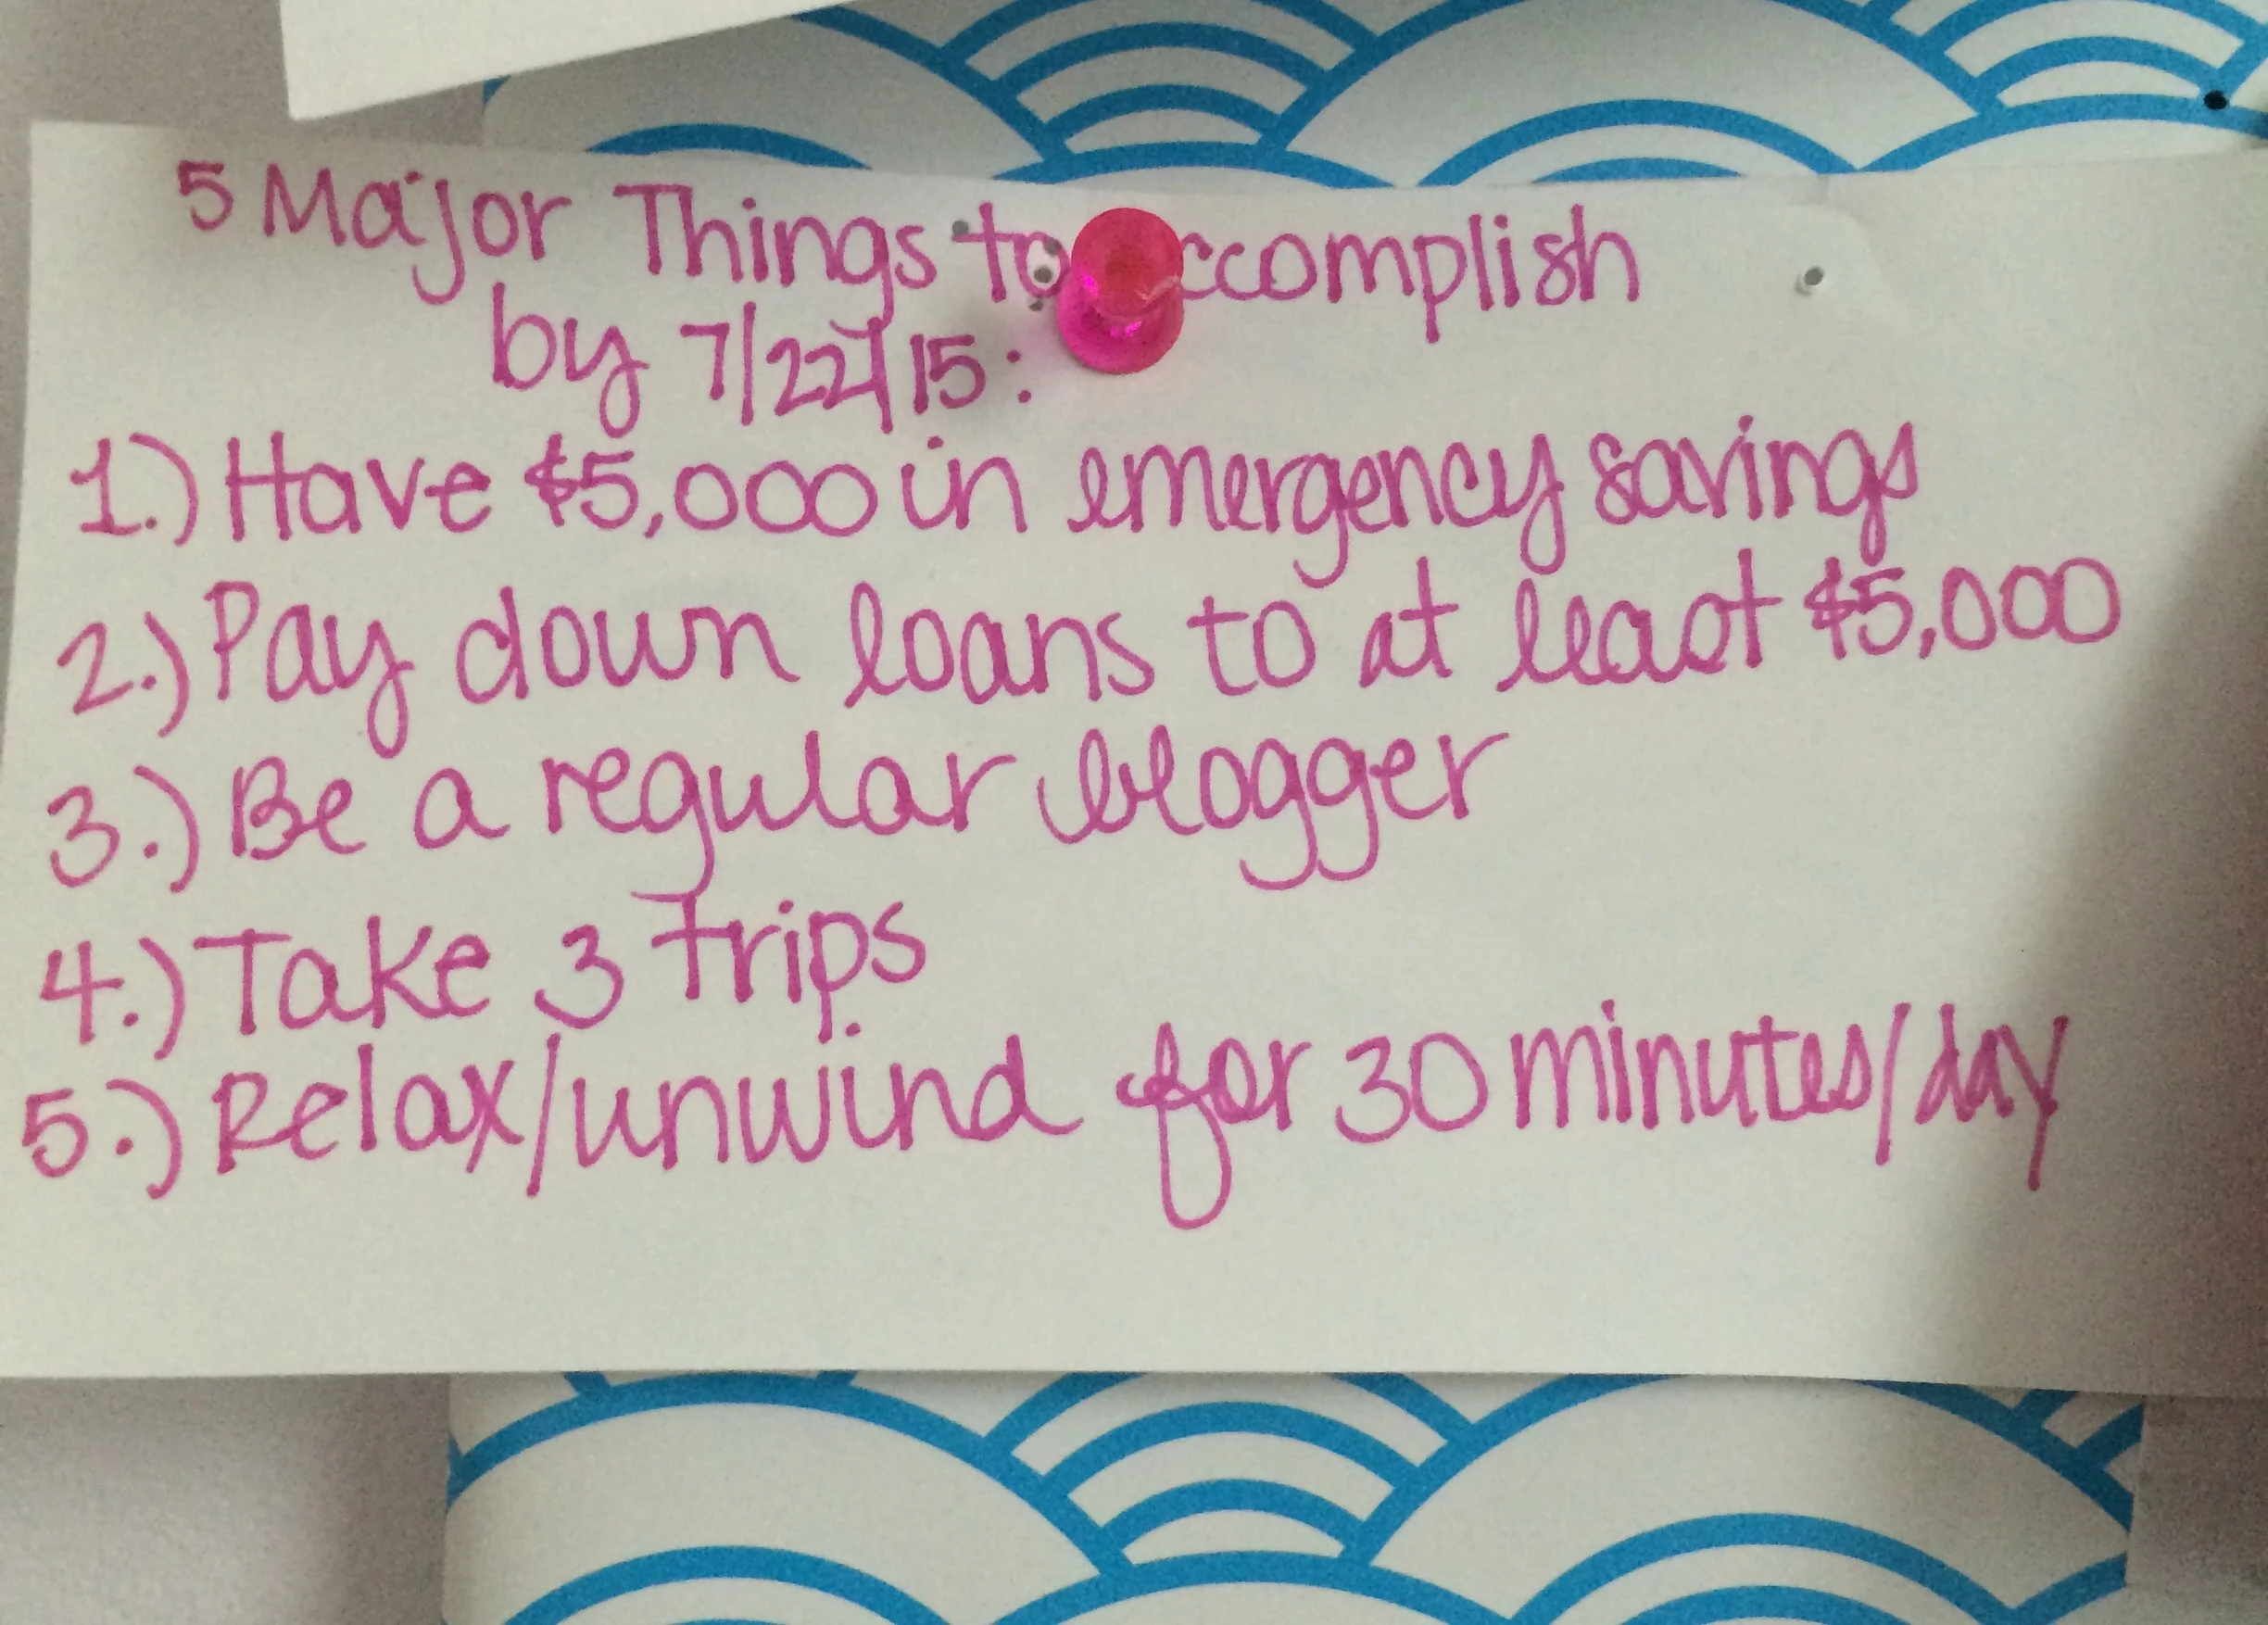 5 Major Things to ccomplish
by 7/22/15:
1.) Have $5,000 in emergency savings
2.) Pay down loans to at least $5,000
3.) Be a regular blogger
4.) Take 3 trips
5.) Relax/unwind for 30 minutes/day